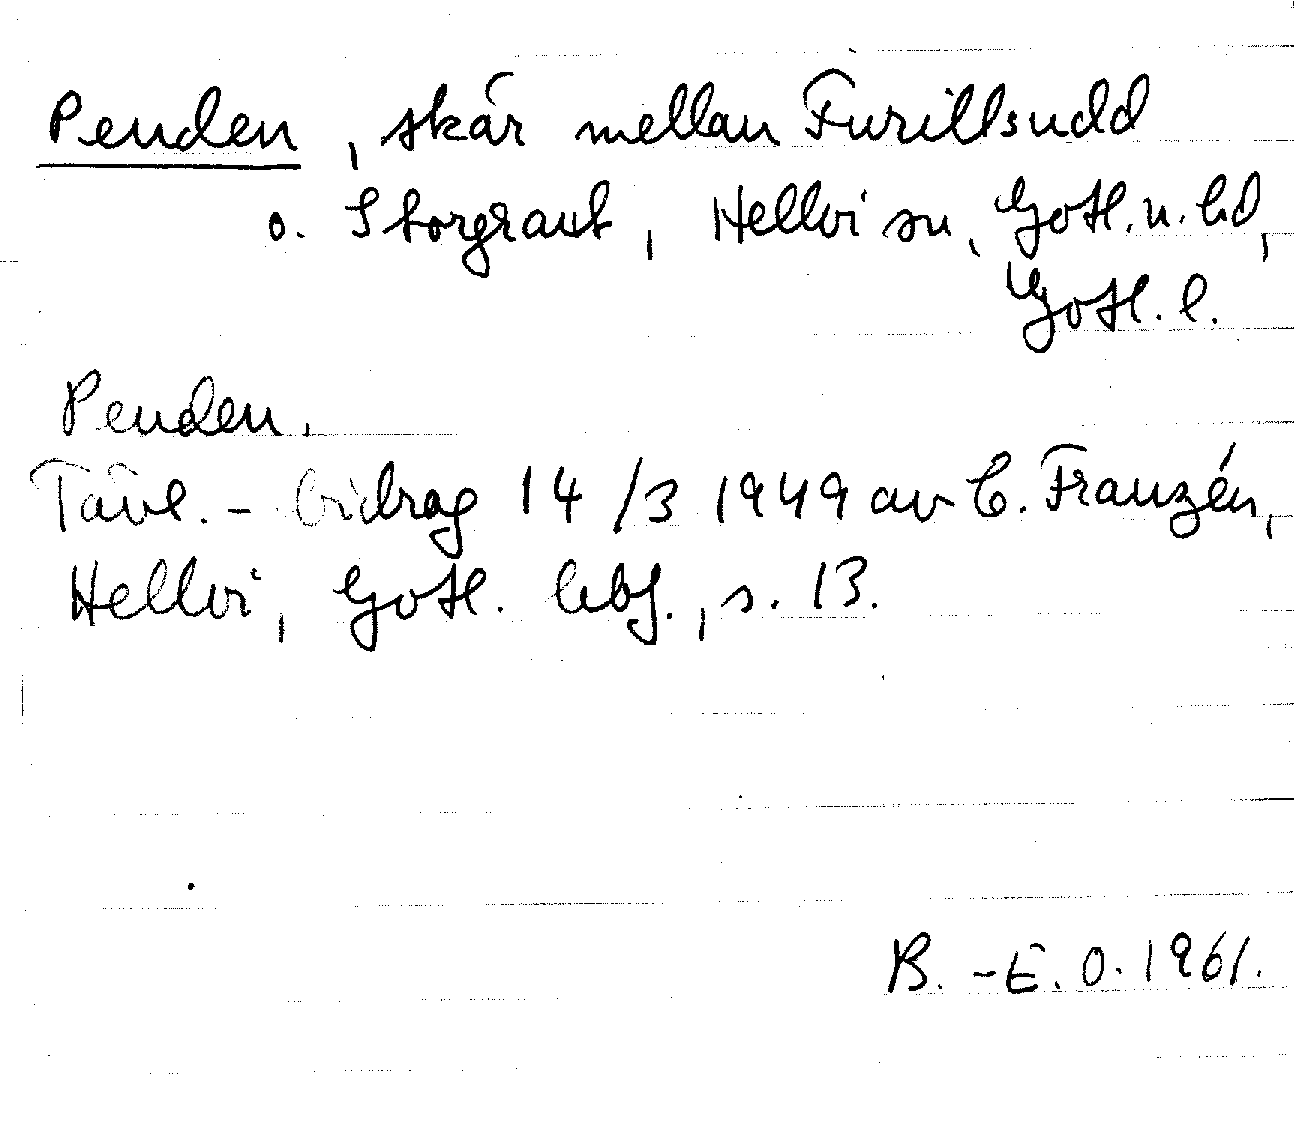 Penden, skär mellan Furillsudd
o. Storgraut, Hellvi sn, Gotl. n. hd,
Gotl. l.
Penden.
Tävl.-bidrag 14/3 1949 av C. Franzén,
Hellvi, Gotl. lbf., s. 13.
B.-E. O. 1961.